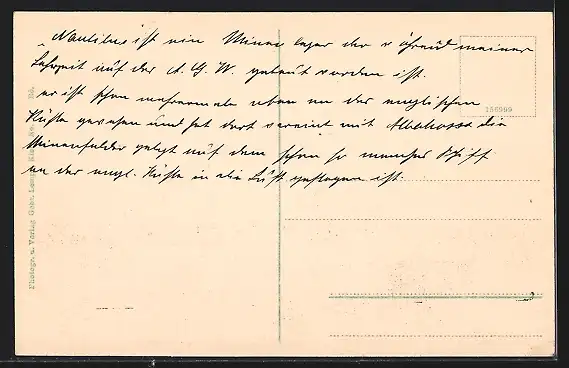 „Nautilus ist ein Minenleger der während meiner
Lehrzeit auf der A. G. W. gebaut worden ist.
er ist schon mehreremale oben an der englischen
Küste gewesen und hat dort vereint mit Albatross die
Minenfelder gelegt auf dem schon so manches Schiff
an der engl. Küste in die Luft geflogen ist.
156999
Photogr. u. Verlag Gebr.